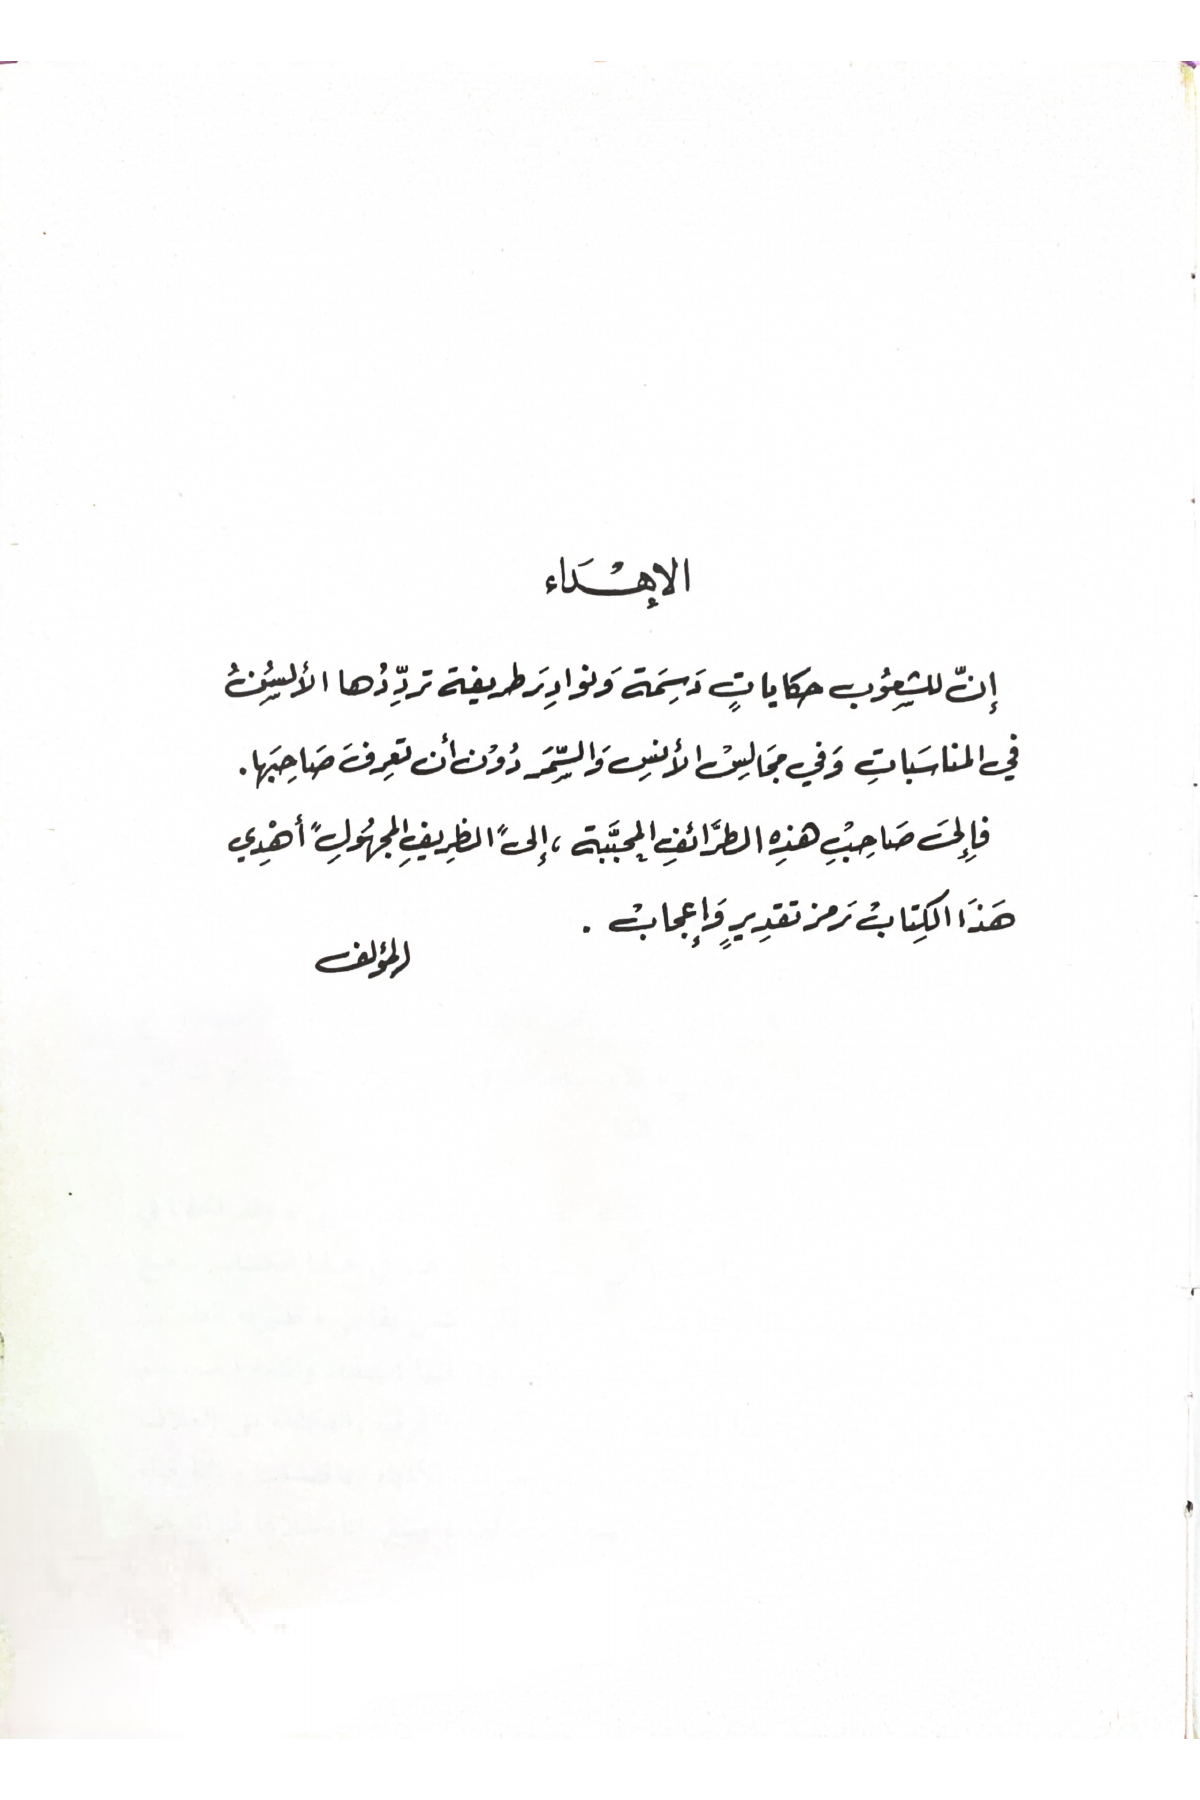 الإهْدَاء
إنّ للشعُوب حكاياتٍ دَسِمَة وَنوادِرَ طريفة تردِّدُها الألسِنُ
في المناسَباتِ وَفي مجَالِسْ الأنسِ وَالسَّمَر دُوْن أن تعرِفَ صَاحِبَها.
فإلىَ صَاحِبْ هذِهِ الطرَّائفِ المحبَّبة ، إلى "الظرِيفِ المجهُولِ" أهْدِي
هَذَا الكِتابْ رَمز تقدِيرٍ وَإعجابْ .
المؤلف